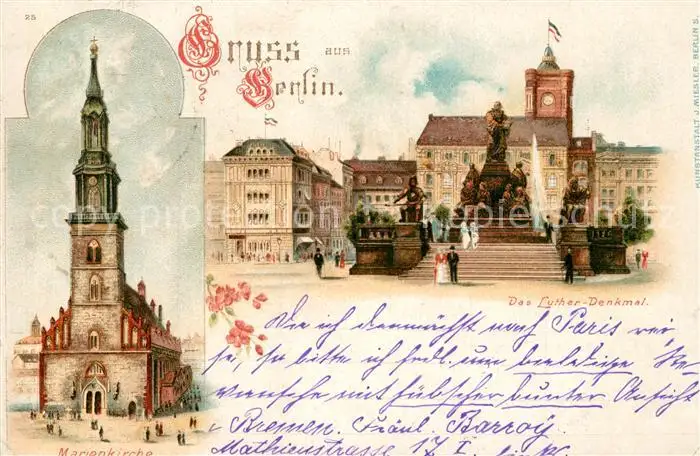 25
Gruss aus
Berlin.
KUNSTANSTALT J. MIESLER, BERLIN S.
Das Luther-Denkmal.
Da ich demnächst nach Paris rei-
se, so bitte ich frdl. um baldige Re-
vanche mit hübscher bunter Ansicht
Bremen. Fräul. Barroy.
Mathienstrasse 17 I.
Marienkirche